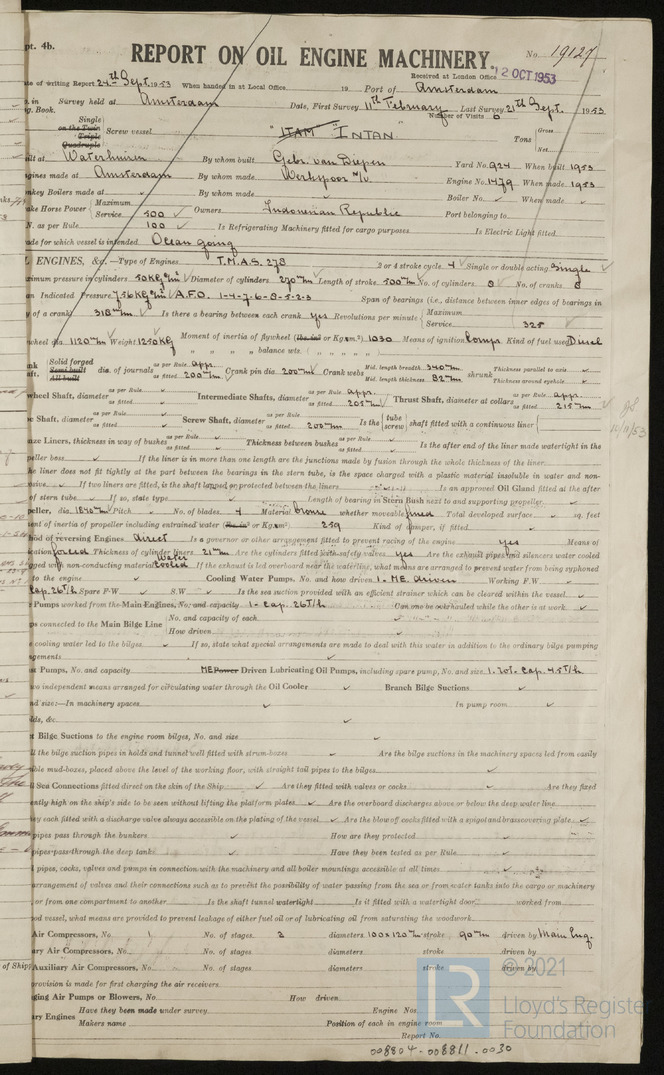 pt. 4b.
REPORT ON OIL ENGINE MACHINERY.
No. 19127
Received at London Office
12 OCT 1953
te of writing Report 24th Sept. 1953 When handed in at Local Office 19 Port of Amsterdam
Survey held at Amsterdam Date, First Survey 11th February Last Survey 21st Sept. 1953
g. Book. Number of Visits
Single
on the Twin
Triple
Quadruple
Screw vessel "ITAM INTAN" Tons Gross
Net
ilt at Waterhuizen By whom built Gebr. van Diepen Yard No. 924 When built 1953
gines made at Amsterdam By whom made Werkspoor N/V Engine No. 1479 When made 1953
nkey Boilers made at By whom made Boiler No. When made
ake Horse Power Maximum
Service 500 Owners Indonesian Republic Port belonging to
N. as per Rule 100 Is Refrigerating Machinery fitted for cargo purposes Is Electric Light fitted
ade for which vessel is intended Ocean going
ENGINES, &c.—Type of Engines T.M.A.S. 278 2 or 4 stroke cycle 4 Single or double acting Single
ximum pressure in cylinders 50 Kg/cm² Diameter of cylinders 270 m/m Length of stroke 500 m/m No. of cylinders 8 No. of cranks 8
an Indicated Pressure 7,50 Kg/cm² A.F.O. 1-4-7-6-8-5-2-3 Span of bearings (i.e., distance between inner edges of bearings in
y of a crank 318 m/m Is there a bearing between each crank yes Revolutions per minute Maximum
Service 325
wheel dia. 1120 m/m Weight 1250 KG Moment of inertia of flywheel (lbs. in² or Kg.cm.²) 1030 Means of ignition Comp. Kind of fuel used Diesel
" " " balance wts. ( " " " )
Solid forged
Semi built
All built
dia. of journals as per Rule app.
as fitted 200 m/m Crank pin dia. 200 m/m Crank webs Mid. length breadth 340 m/m
Mid. length thickness 82 m/m shrunk Thickness parallel to axis
Thickness around eyehole
wheel Shaft, diameter as per Rule
as fitted Intermediate Shafts, diameter as per Rule app.
as fitted 205 m/m Thrust Shaft, diameter at collars as per Rule app.
as fitted 215 m/m
e Shaft, diameter as per Rule
as fitted Screw Shaft, diameter as per Rule
as fitted 200 m/m Is the tube
screw shaft fitted with a continuous liner
nze Liners, thickness in way of bushes as per Rule
as fitted Thickness between bushes as per Rule
as fitted Is the after end of the liner made watertight in the
peller boss If the liner is in more than one length are the junctions made by fusion through the whole thickness of the liner
he liner does not fit tightly at the part between the bearings in the stern tube, is the space charged with a plastic material insoluble in water and non-
sive If two liners are fitted, is the shaft lapped or protected between the liners Is an approved Oil Gland fitted at the after
of stern tube If so, state type Length of bearing in Stern Bush next to and supporting propeller
peller, dia. 1840 m/m Pitch No. of blades 4 Material bronze whether moveable fixed Total developed surface sq. feet
ent of inertia of propeller including entrained water (lbs.in² or Kg.cm²) 259 Kind of damper, if fitted
hod of reversing Engines direct Is a governor or other arrangement fitted to prevent racing of the engine yes Means of
ication forced Thickness of cylinder liners 21 m/m Are the cylinders fitted with safety valves yes Are the exhaust pipes and silencers water cooled
gged with non-conducting material water cooled If the exhaust is led overboard near the waterline, what means are arranged to prevent water from being syphoned
to the engine Cooling Water Pumps, No. and how driven 1- ME. driven Working F.W
cap. 26T/h Spare F.W S.W Is the sea suction provided with an efficient strainer which can be cleared within the vessel
Pumps worked from the Main Engines, No. and capacity 1- Cap. 26T/h Can one be overhauled while the other is at work
ps connected to the Main Bilge Line No. and capacity of each
How driven
e cooling water led to the bilges If so, state what special arrangements are made to deal with this water in addition to the ordinary bilge pumping
ngements
Pumps, No. and capacity ME Power Driven Lubricating Oil Pumps, including spare pump, No. and size 1. rot. cap 4.5T/h
wo independent means arranged for circulating water through the Oil Cooler Branch Bilge Suctions
nd size:—In machinery spaces In pump room
lds, &c.
t Bilge Suctions to the engine room bilges, No. and size
ll the bilge suction pipes in holds and tunnel well fitted with strum-boxes Are the bilge suctions in the machinery spaces led from easily
ible mud-boxes, placed above the level of the working floor, with straight tail pipes to the bilges
ll Sea Connections fitted direct on the skin of the Ship Are they fitted with valves or cocks Are they fixed
ently high on the ship's side to be seen without lifting the platform plates Are the overboard discharges above or below the deep water line
ey each fitted with a discharge valve always accessible on the plating of the vessel Are the blow off cocks fitted with a spigot and brass covering plate
pipes pass through the bunkers How are they protected
pipes pass through the deep tanks Have they been tested as per Rule
l pipes, cocks, valves and pumps in connection with the machinery and all boiler mountings accessible at all times
arrangement of valves and their connections such as to prevent the possibility of water passing from the sea or from water tanks into the cargo or machinery
, or from one compartment to another Is the shaft tunnel watertight Is it fitted with a watertight door worked from
ood vessel, what means are provided to prevent leakage of either fuel oil or of lubricating oil from saturating the woodwork
Air Compressors, No. 1 No. of stages 2 diameters 100x120 m/m stroke 90 m/m driven by Main Eng.
ary Air Compressors, No. No. of stages diameters stroke driven by
Auxiliary Air Compressors, No. No. of stages diameters stroke driven by
provision is made for first charging the air receivers
ging Air Pumps or Blowers, No. How driven
ary Engines Have they been made under survey Engine Nos.
Makers name Position of each in engine room
Report No.
008804-008811-0030
of Ship
© 2021
Lloyd's Register
Foundation
LR